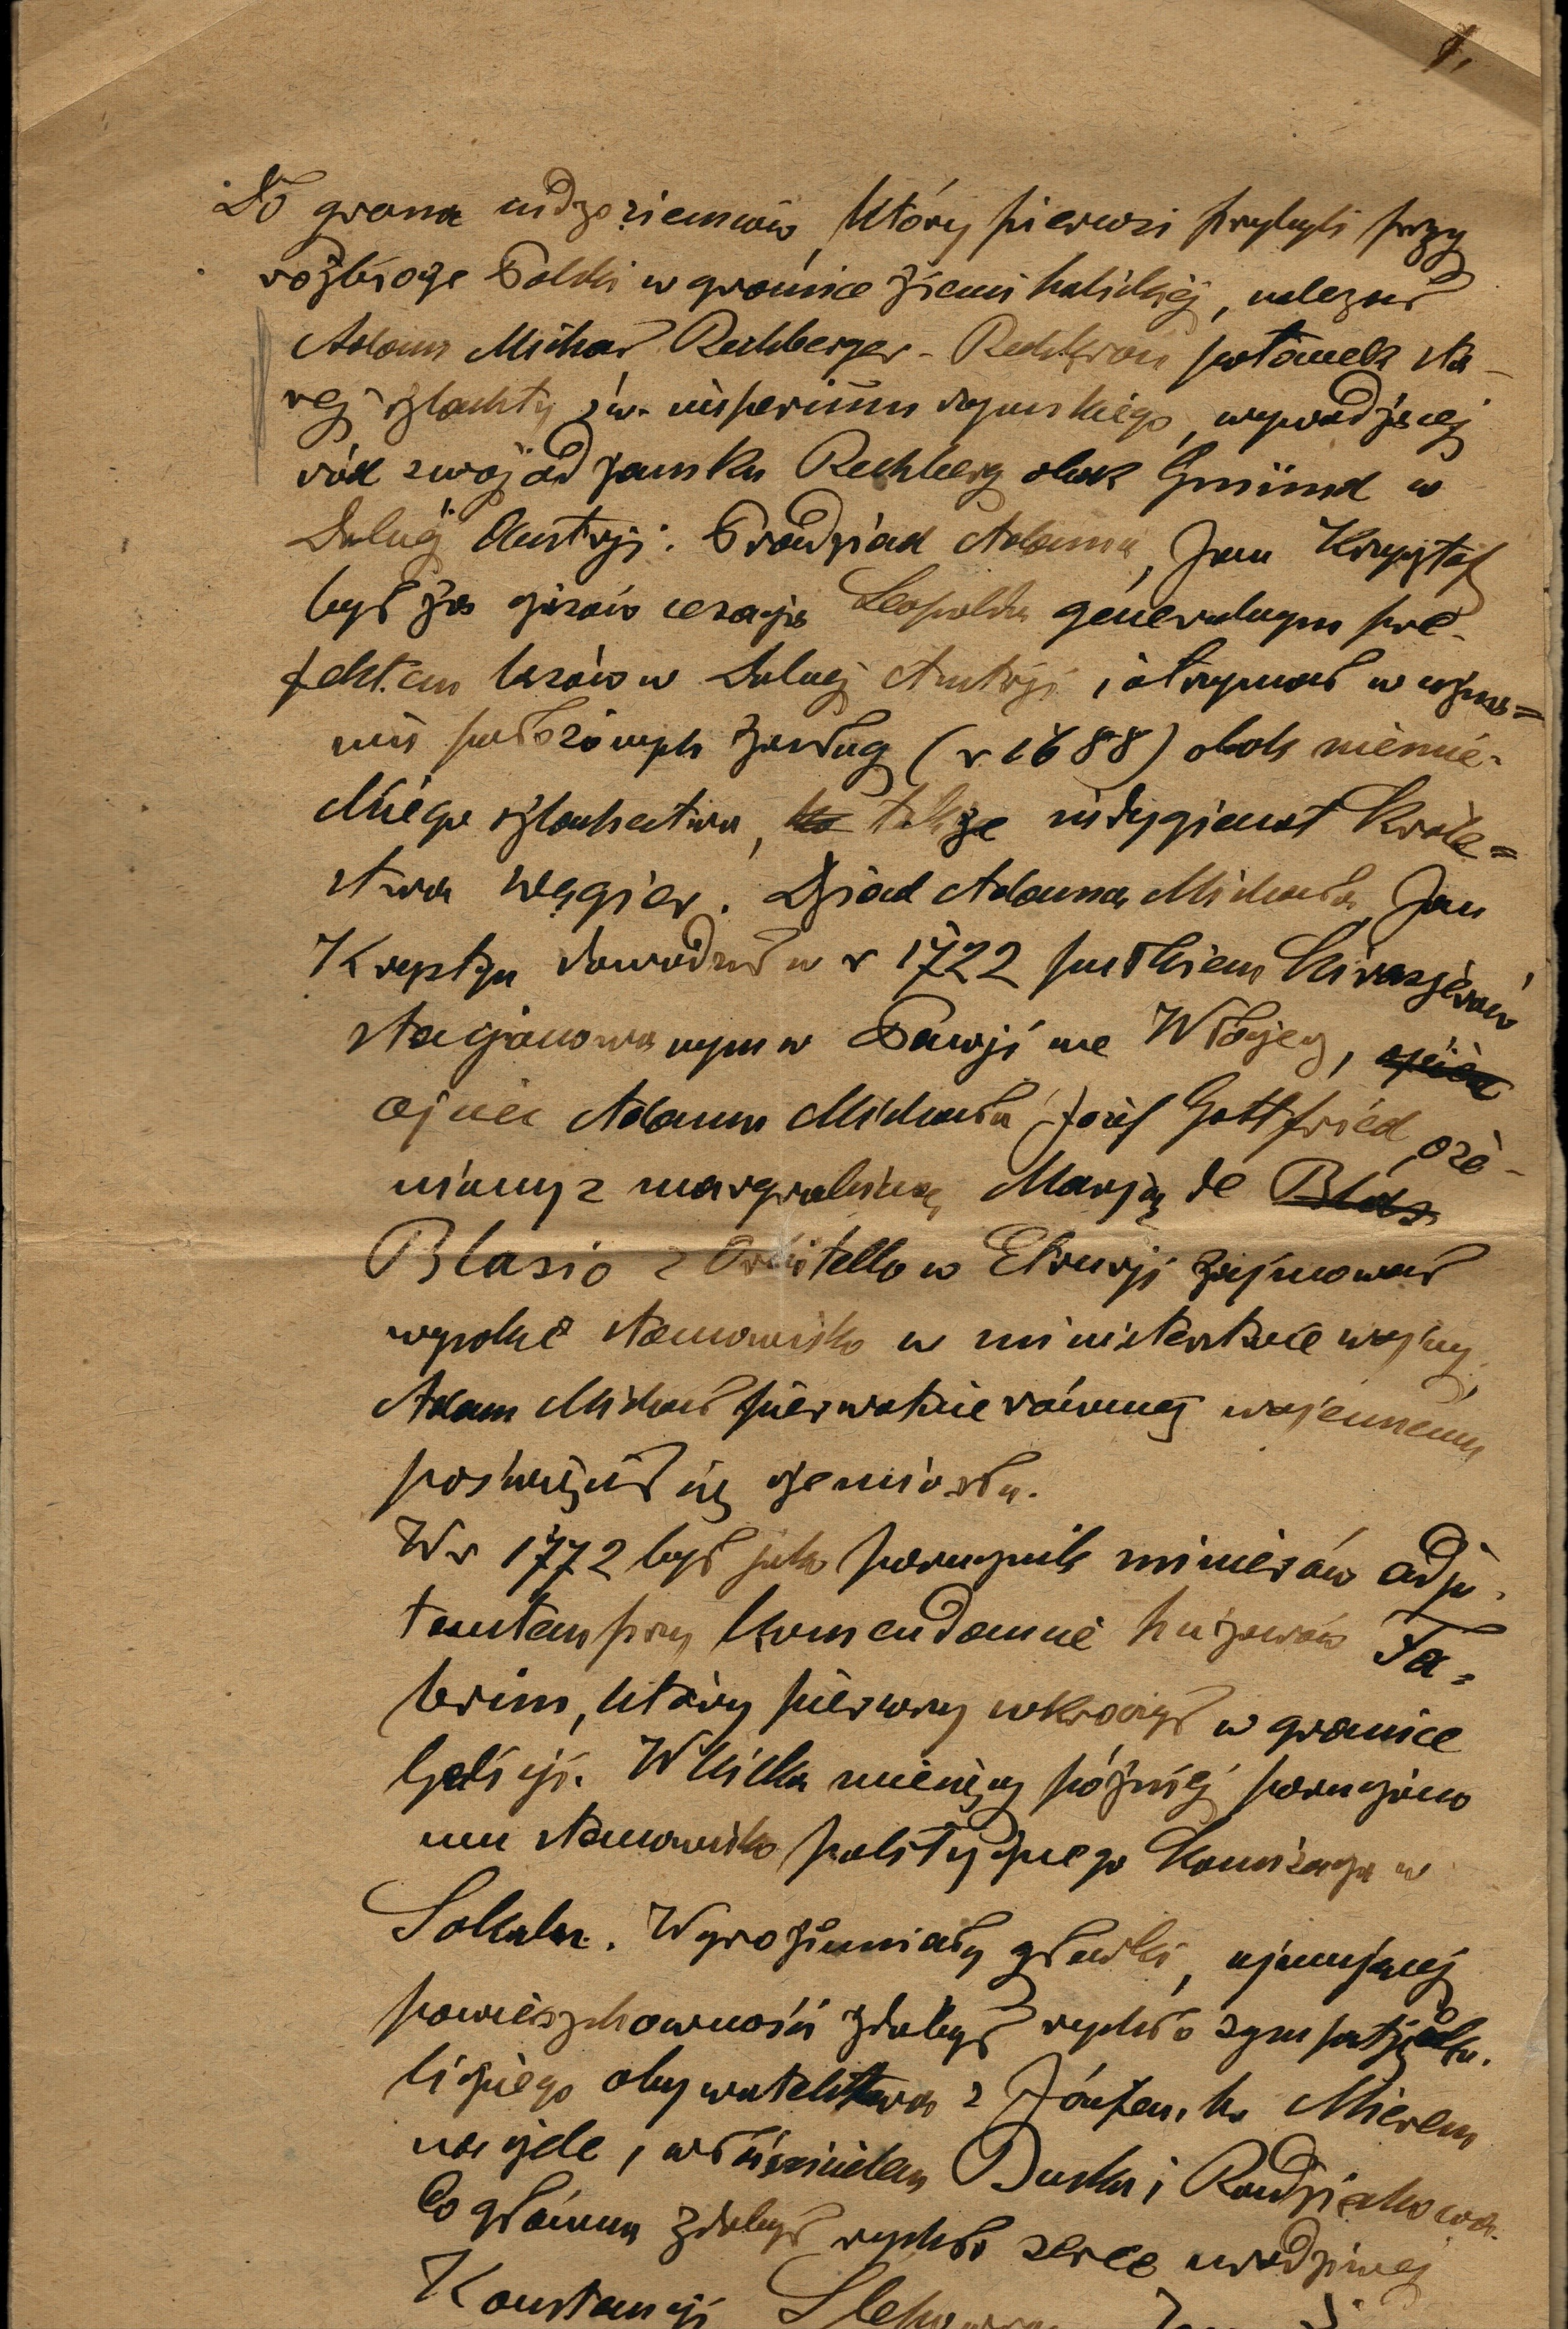 1.
Do grona cudzoziemców, który pierwsi przybyli przy
rozbiorze Polski w granice ziemi halickiej, należał
Adam Michał Rechberger-Rechkron potomek sta-
rej szlachty św. imperium rzymskiego, wywodzącej
ród swój od zamku Rechberg obok Gmünd w
Dolnej Austryi. Pradziad Adama, Jan Krzysztof
był za czasów cesarza Leopolda generalnym pre-
fektem lasów w Dolnej Austryi i otrzymał w uzna=
niu położonych zasług (r 1688) obok niemie-
ckiego szlachectwa, także indygienat Króle=
stwa Węgier. Dziad Adama Michała, Jan
Krystyn dowodził w r 1722 pułkiem Kirasjerów
stacjonowanym w Pawji we Włoszech,
ojciec Adama Michała Józef Gottfried, oże-
niony z margrabiną Marją de Blas
Blasio z Orbitello w Etrurji zajmował
wysokie stanowisko w ministerstwie wojny.
Adam Michał pierwotnie również wojennemu
poświęcił się rzemiosłu.
W r 1772 był jako porucznik minierów adju-
tantem przy komendancie huzarów
który pierwszy wkroczył w granice
Galicji. W kilka miesięcy później poruczono
mu stanowisko politycznego Komisarza w
Sokalu. Wyrozumiały gładki, ujmującej
powierzchowności zdobył rychło sympatję oko.
licznego obywatelstwa z Józefem hr Mierem
na czele, właścicielem Buska i Radziechowa.
Co główna zdobył rychło serce urodziwej
Konstancji